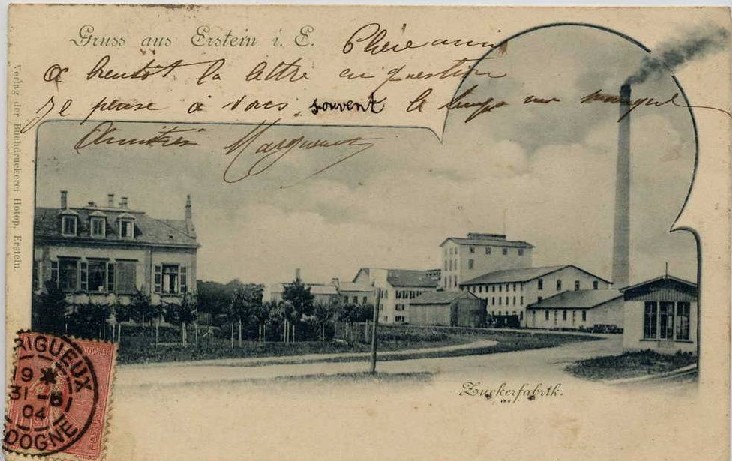 Gruss aus Erstein i. E.
Chère amie
a bientôt la lettre en question
Je pense à vous souvent le temps me manque
Amitiés Marguerite
Verlag der Buchdruckerei Hotop, Erstein
Zuckerfabrik.
RIGUEUX
19 *
31 - 5
04
DOGNE